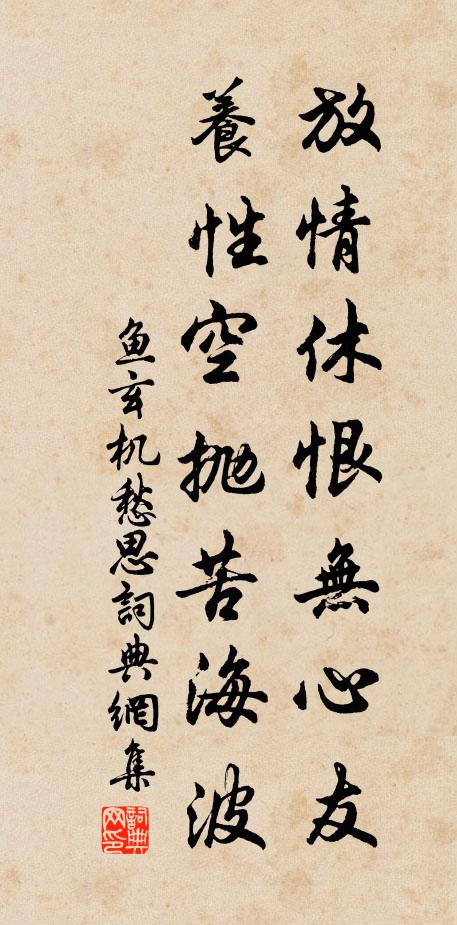 放情休恨無心友
養性空抛苦海波
鱼玄机愁思詞典網集
詞典网印